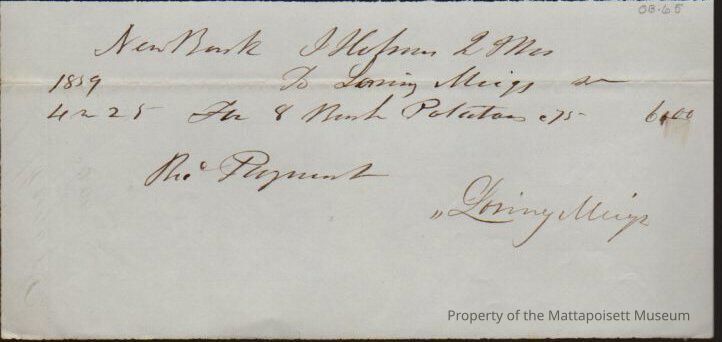 OB-65
New Bark J Holmes 2 Mes
1859 To Loring Meigs Dr
4 m 25 For 8 Bush Potatoes .75 6.00
Recd Payment
Loring Meigs
Property of the Mattapoisett Museum